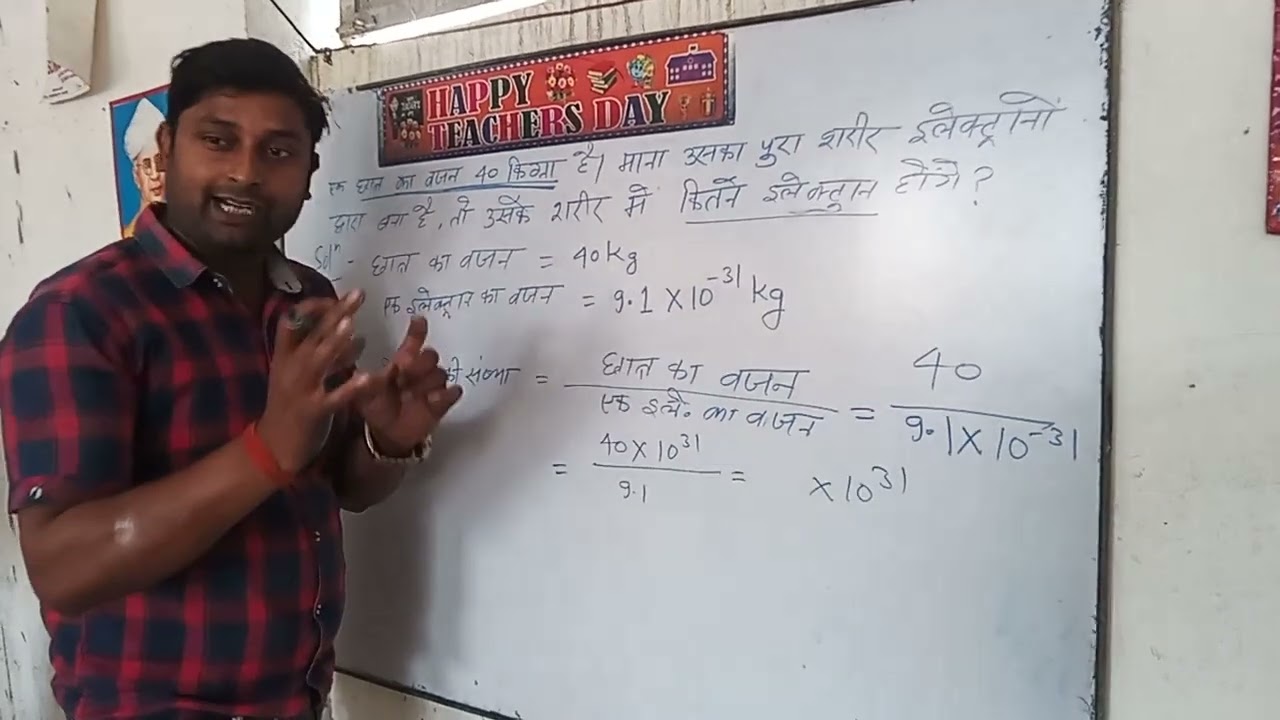 HAPPY
TEACHERS DAY
एक छात्र का वजन 40 किग्रा है। माना उसका पुरा शरीर इलेक्ट्रानों
द्वारा बना है, तो उसके शरीर में कितने इलेक्ट्रान होंगे?
Solⁿ - छात्र का वजन = 40kg
एक इलेक्ट्रान का वजन = 9.1 × 10⁻³¹ kg
की संख्या = छात्र का वजन / एक इलै० का वजन = 40 / 9.1 × 10⁻³¹
= 40 × 10³¹ / 9.1 = × 10³¹